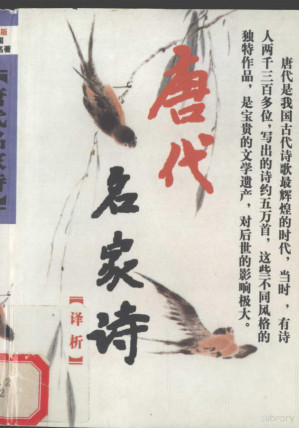 唐代
名家诗
【译析】
唐代是我国古代诗歌最辉煌的时代，当时，有诗
人两千三百多位，写出的诗约五万首，这些不同风格的
独特作品，是宝贵的文学遗产，对后世的影响极大。